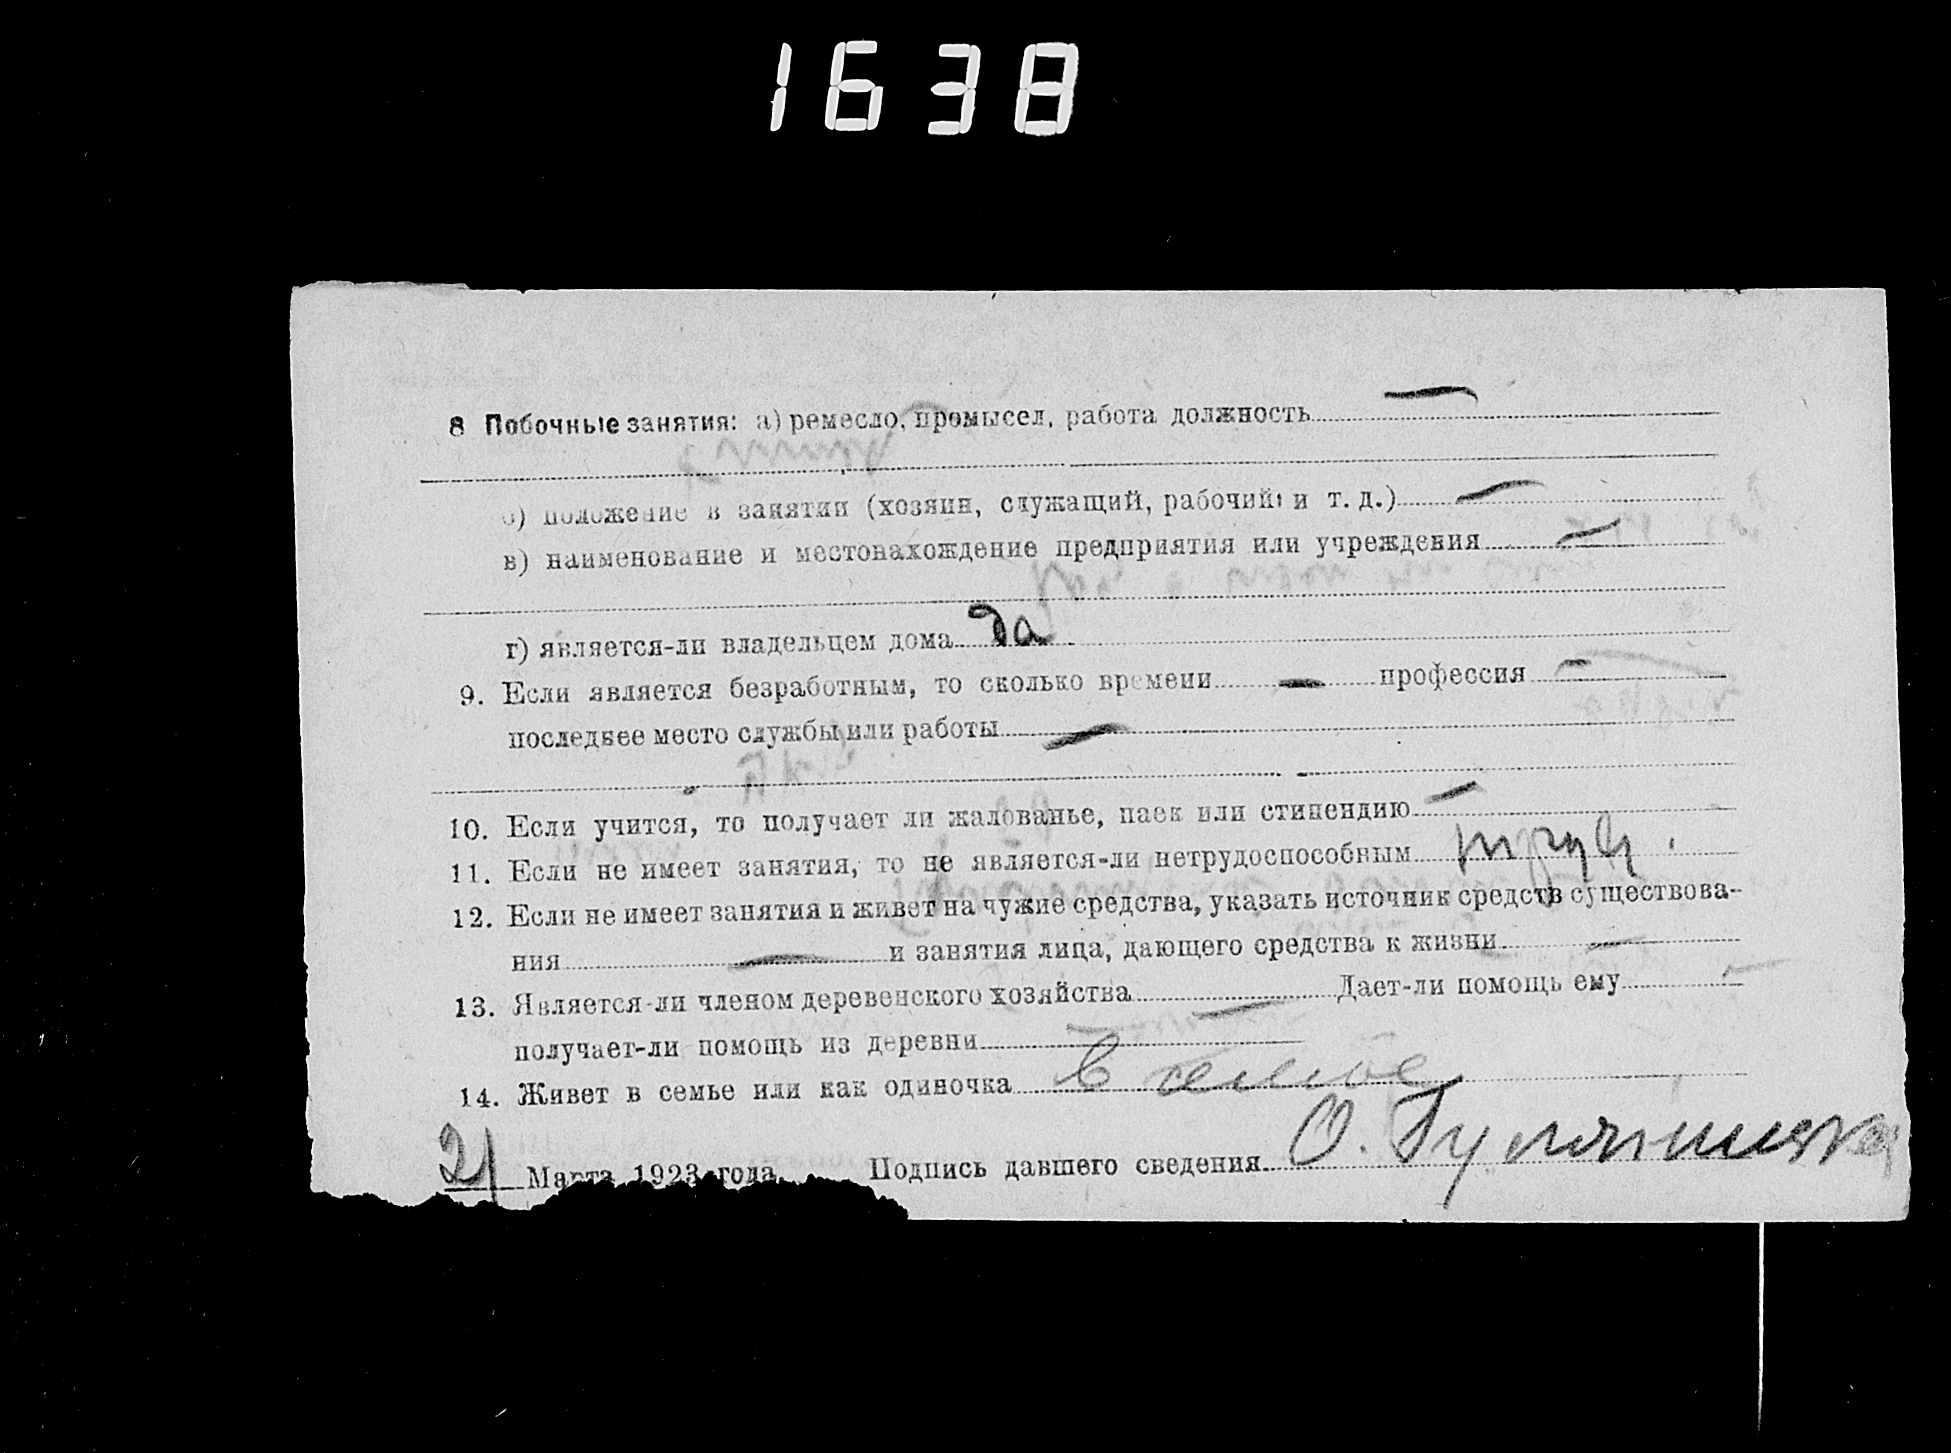 1638
8 Побочные занятия: а) ремесло, промысел, работа должность —
б) положение в занятии (хозяин, служащий, рабочий и т. д.) —
в) наименование и местонахождение предприятия или учреждения —
г) является-ли владельцем дома да
9. Если является безработным, то сколько времени — профессия —
последнее место службы или работы —
10. Если учится, то получает ли жалованье, паек или стипендию —
11. Если не имеет занятия, то не является-ли нетрудоспособным труд.
12. Если не имеет занятия и живет на чужие средства, указать источник средств существова-
ния — и занятия лица, дающего средства к жизни —
13. Является-ли членом деревенского хозяйства — Дает-ли помощь ему —
получает-ли помощь из деревни —
14. Живет в семье или как одиночка в семье
21 Марта 1923 года Подпись давшего сведения О.